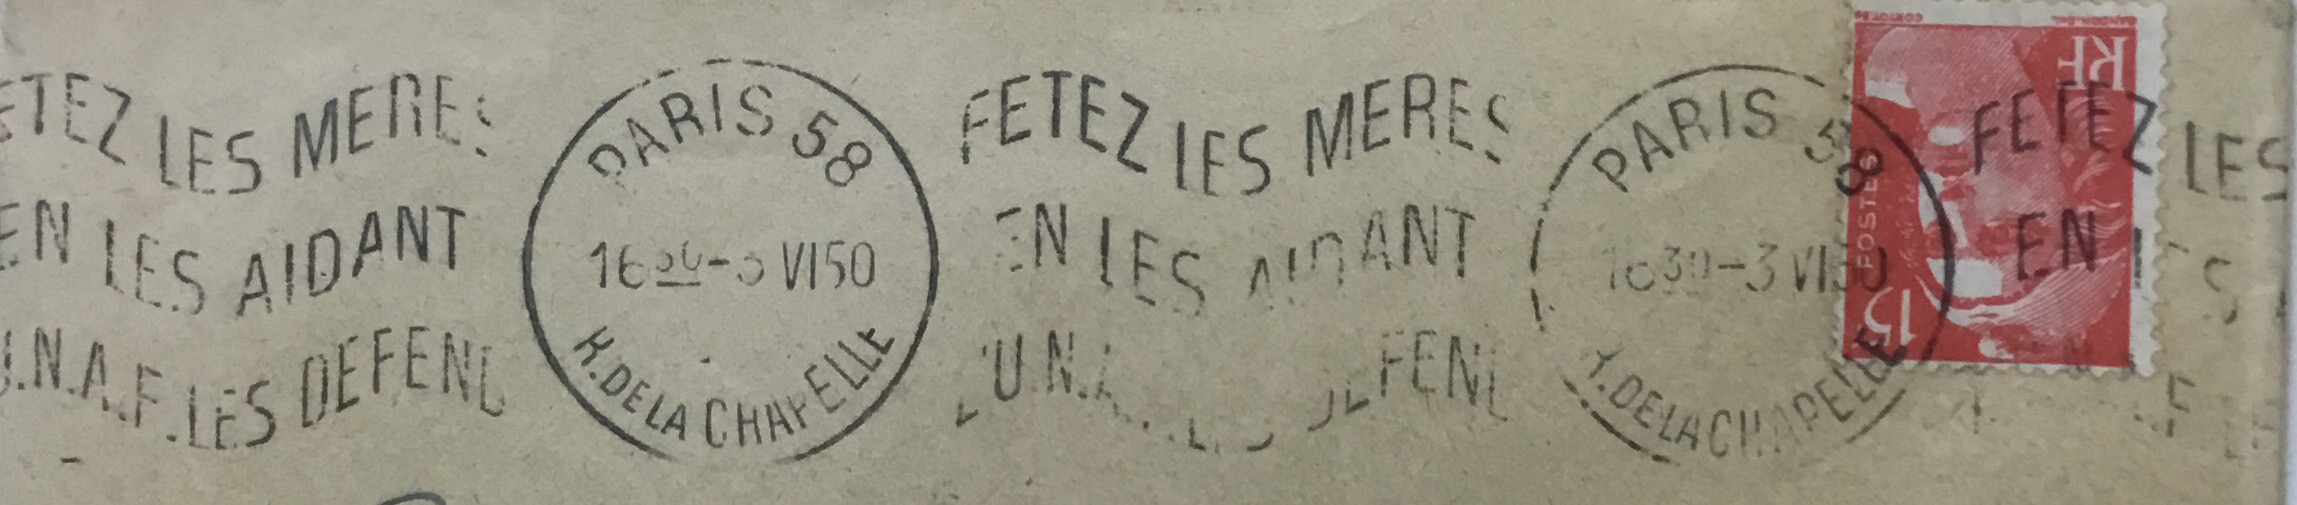 FETEZ LES MERES
EN LES AIDANT
U.N.A.F. LES DEFEND
PARIS 58
16 30 - 3 VI 50
R. DE LA CHAPELLE
FETEZ LES MERES
EN LES AIDANT
L'U.N.A.F. LES DEFEND
PARIS 58
16 30 - 3 VI 50
R. DE LA CHAPELLE
RF
POSTES
15
FETEZ LES
EN LES